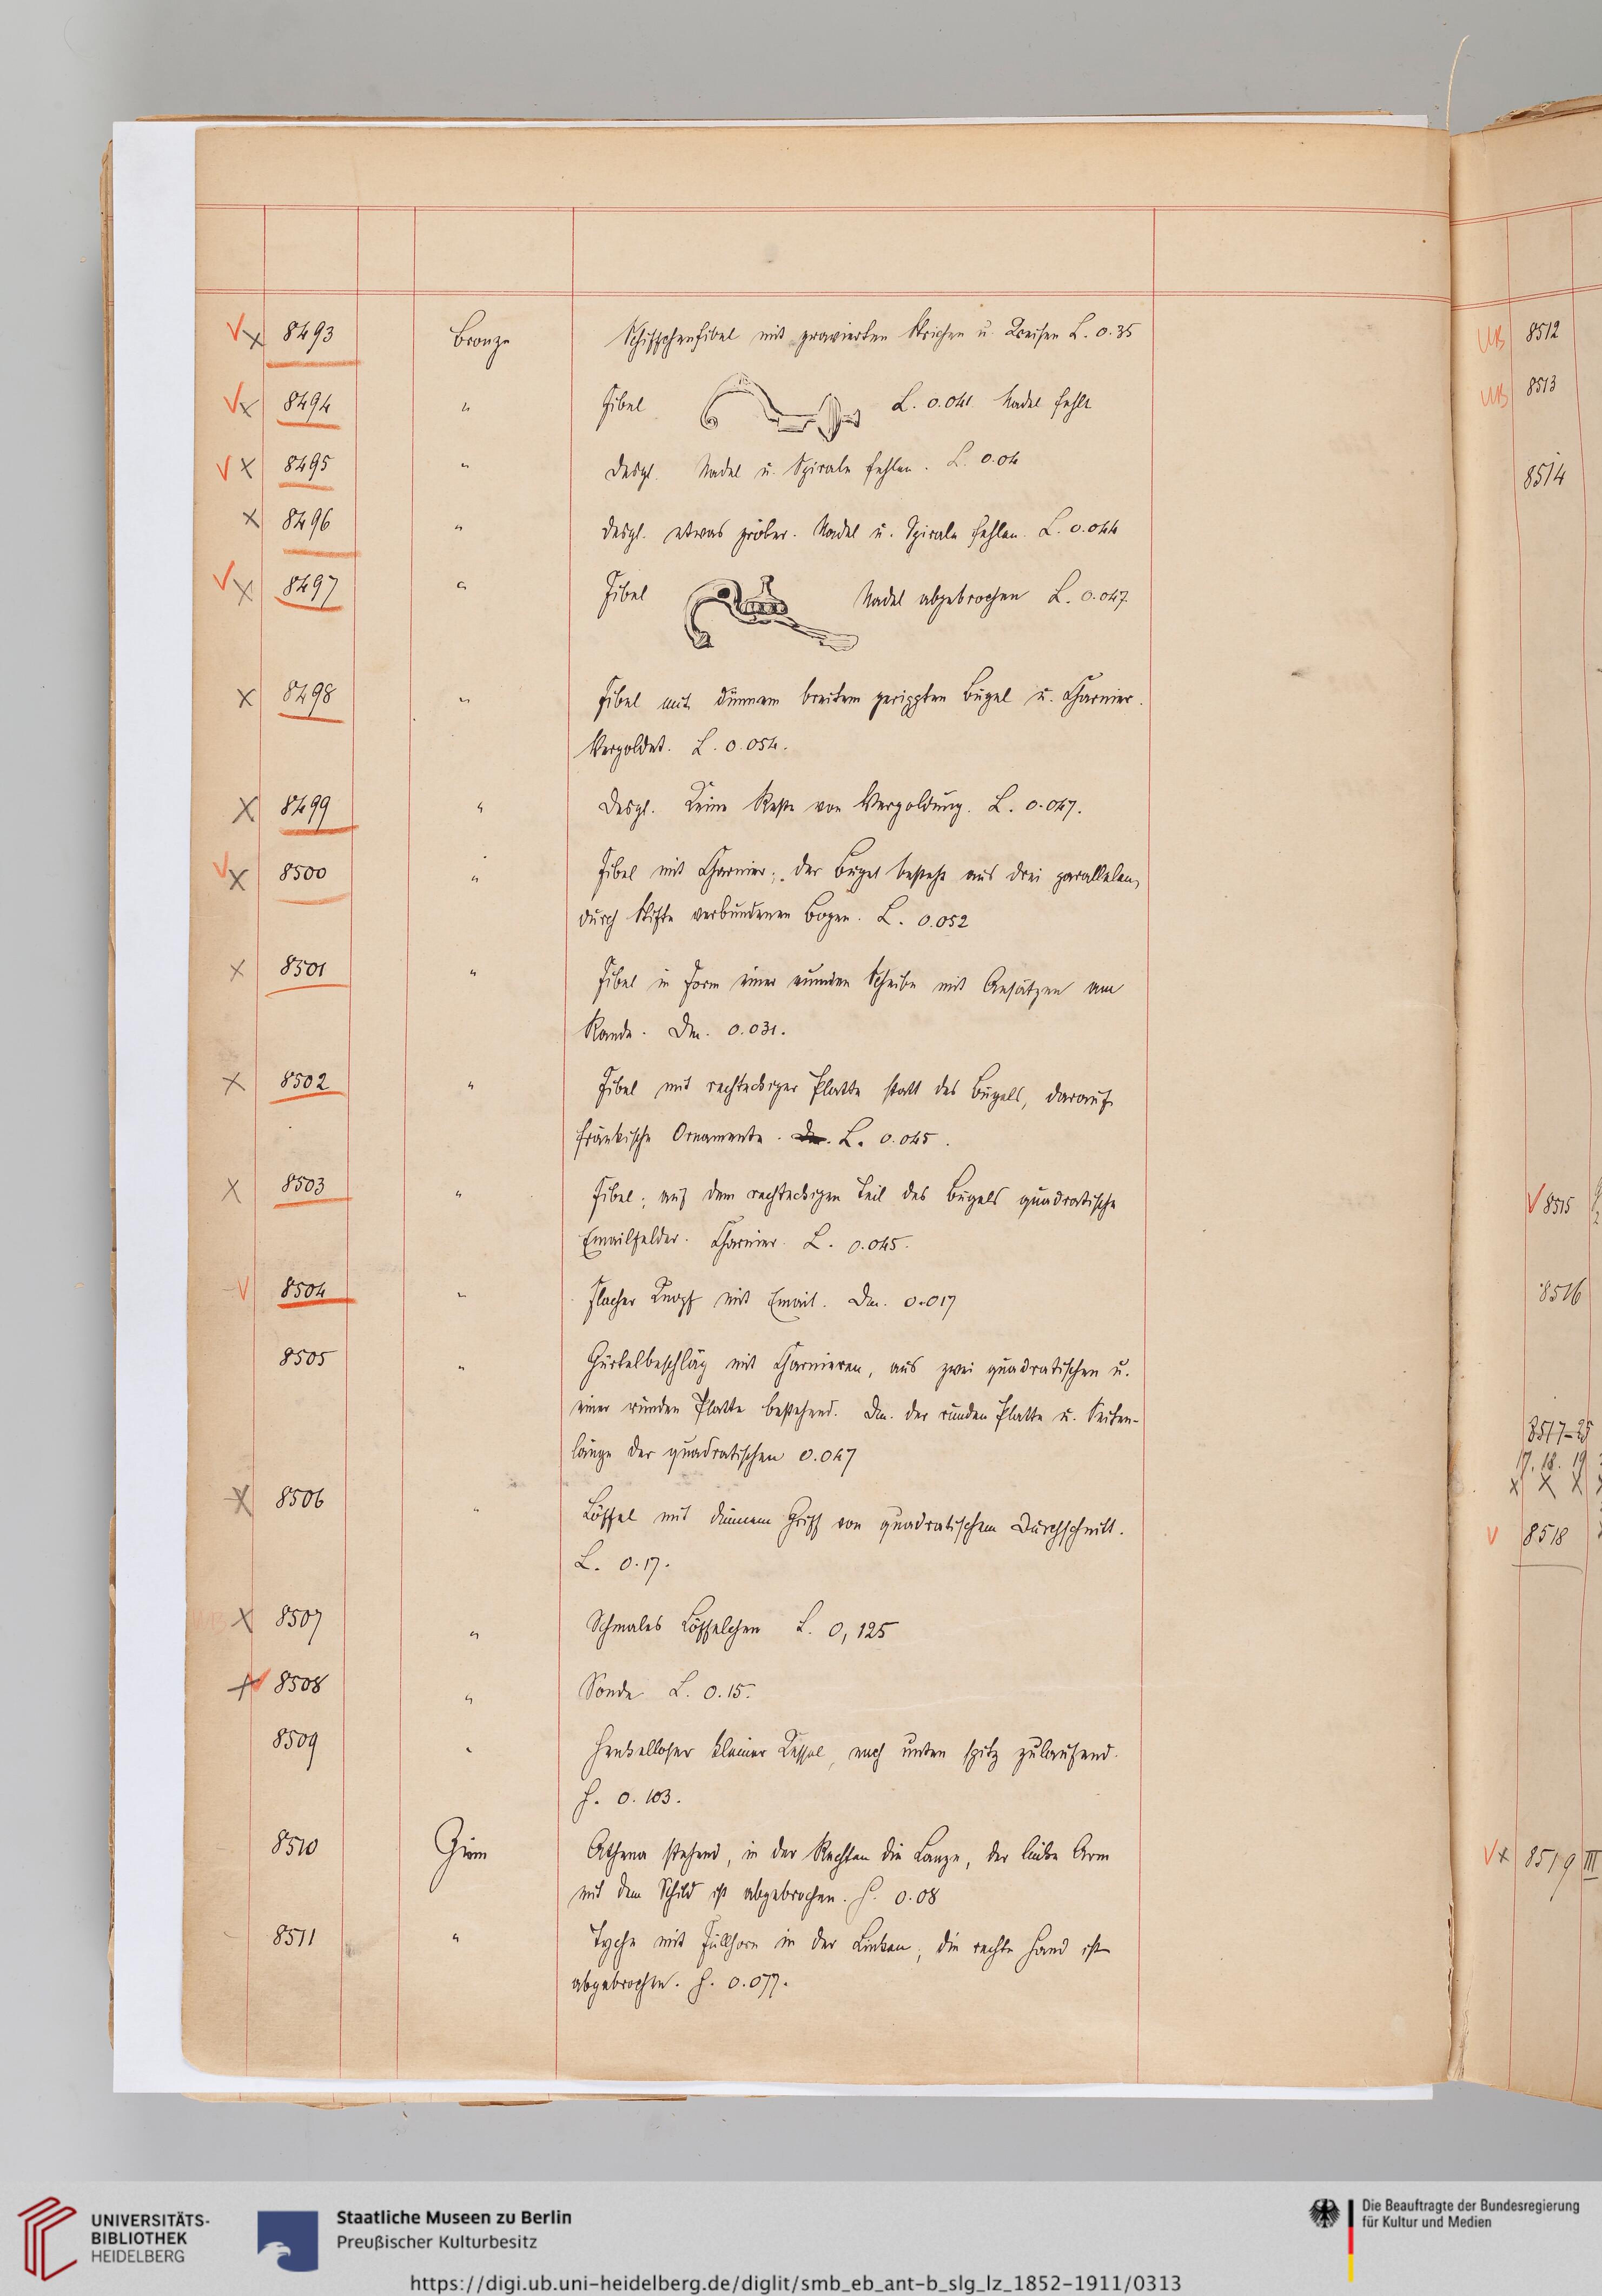 8493 Bronze Schiffchenfibel mit gravierten Strichen u. Kreisen L. 0.35
8494 " Fibel L. 0.041 Nadel fehlt
8495 " Desgl. Nadel u. Spirale fehlen. L. 0.04
8496 " Desgl. etwas gröber. Nadel u. Spirale fehlen. L. 0.044
8497 " Fibel Nadel abgebrochen L. 0.047.
8498 " Fibel mit dünnem breitem gerippten Bügel u. Charnier.
Vergoldet. L. 0.054.
8499 " Desgl. Keine Reste von Vergoldung. L. 0.047.
8500 " Fibel mit Charnier; der Bügel besteht aus drei parallelen,
durch Stifte verbundenen Bogen. L. 0.052
8501 " Fibel in Form einer runden Scheibe mit Ansätzen am
Rande. Dm. 0.031.
8502 " Fibel mit rechteckiger Platte statt des Bügels, darauf
fränkische Ornamente. Dm. L. 0.045.
8503 " Fibel; auf dem rechteckigen Teil des Bügels quadratische
Emailfelder. Charnier. L. 0.045.
8504 " Flacher Knopf mit Email. Dm. 0.017
8505 " Gürtelbeschläg mit Charnieren, aus zwei quadratischen u.
einer runden Platte bestehend. Dm. der runden Platte u. Seiten-
länge der quadratischen 0.047
8506 " Löffel mit dünnem Griff von quadratischem Durchschnitt.
L. 0.17.
8507 " Schmales Löffelchen L. 0,125
8508 " Sonde L. 0.15.
8509 " Henkelloser kleiner Kessel, nach unten spitz zulaufend.
H. 0.103.
8510 Athena stehend, in der Rechten die Lanze, der linke Arm
mit dem Schild ist abgebrochen. H. 0.08
8511 " Tyche mit Füllhorn in der Linken; die rechte Hand ist
abgebrochen. H. 0.077.
UB 8512
UB 8513
8514
8515
8516
8517-25
17. 18. 19
X X X
8518
8519 III
UNIVERSITÄTS-
BIBLIOTHEK
HEIDELBERG
Staatliche Museen zu Berlin
Preußischer Kulturbesitz
Die Beauftragte der Bundesregierung
für Kultur und Medien
https://digi.ub.uni-heidelberg.de/diglit/smb_eb_ant-b_slg_lz_1852-1911/0313